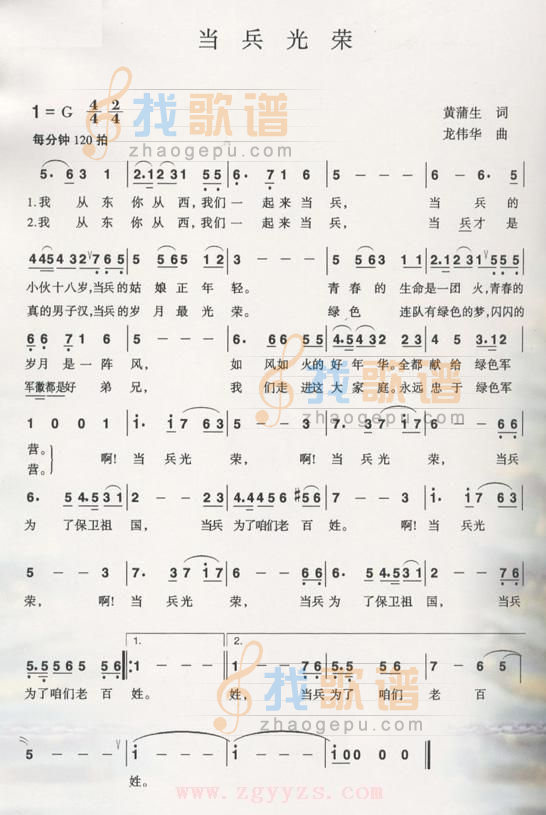 当兵光荣
1=G 4/4 2/4
黄蒲生 词
每分钟120拍
龙伟华 曲
找歌谱
zhaogepu.com
5. 63 1 | 2.12 31 55 | 6. 71 6 | 5 - - 5 | 6 - 6. 5
1.我 从东 你从西,我们一 起来当 兵, 当 兵 的
2.我 从东 你从西,我们一 起来当 兵, 当 兵才是
445 432 765 | 5 565 12 | 3 - - - | 5 563 11 | 2.12 31 555
小伙十八岁,当兵的姑 娘正年 轻。 青春的 生命是一团 火,青春的
真的男子汉,当兵的岁 月最光 荣。 绿色 连队有绿色的梦,闪闪的
66 71 6 | 5 - - - | 6. 66 55 | 4.5 432 2 | 4 5 3.12
岁月是一阵 风, 如 风如火的 好年 华。全都 献给 绿色军
军徽都是好 弟 兄, 我 们走进这 大家 庭。永远 忠于 绿色军
1 0 0 1 | i. i7 63 | 5 - - 3 | 7. 37 i7 | 6 - - 66
营。 啊! 当 兵光 荣, 啊! 当 兵光 荣, 当兵
营。
6. 54.531 | 2 - - 23 | 4.4456 #56 | 7 - - i | i. i7 63
为 了保卫祖 国, 当兵 为了咱们老 百 姓。 啊! 当 兵光
找歌谱
zhaogepu.com
5 - - 3 | 7. 37 i7 | 6 - - 66 | 6. 54.531 | 2 - - 76
荣, 啊! 当 兵光 荣, 当兵 为 了保卫祖 国, 当兵
1. 2.
5.5565 56 :| 1 - - - | 1 - - 76 | 5.5 56 | 7 - 6 5
为了咱们老 百 姓。 姓, 当兵 为了 咱们 老 百
找歌谱
zhaogepu.com
5 - - - | i - - - | i - - - | i00 0 0 0 ||
姓。
www.zgyyzs.com